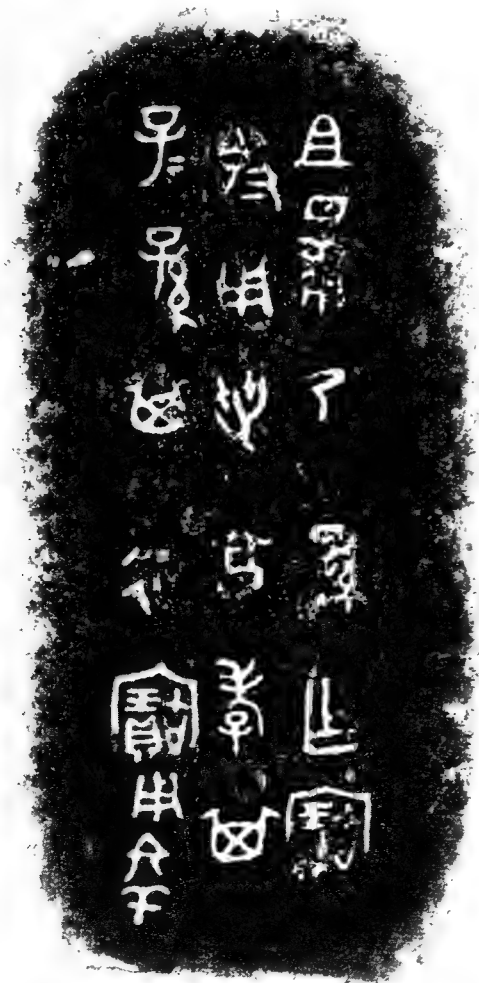 且日庚乃孫乍寶
𣪘用世享孝其
子孫其永寶用